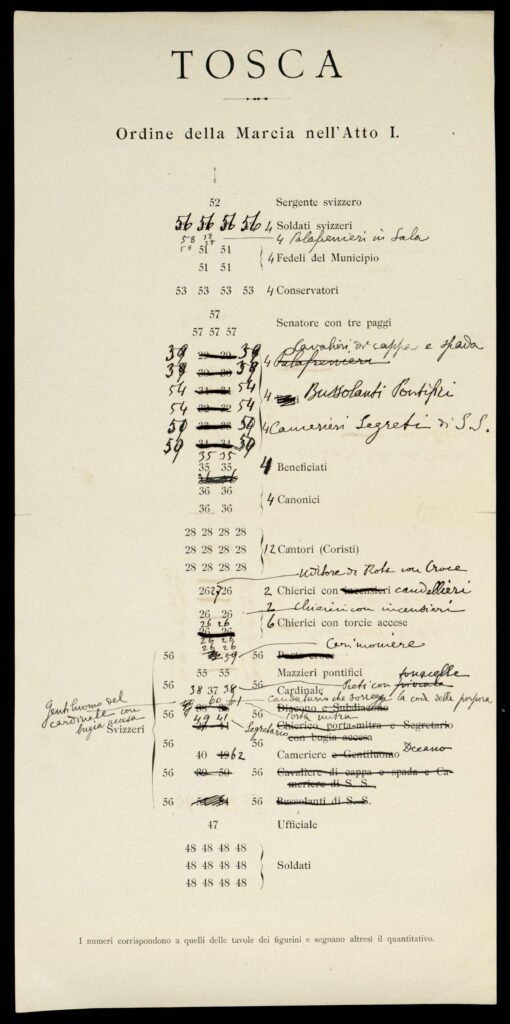 TOSCA
Ordine della Marcia nell'Atto I.
52 Sergente svizzero
56 56 56 56 4 Soldati svizzeri
58 58 4 Palafrenieri in Sala
58 51 51
4 Fedeli del Municipio
51 51
53 53 53 53 4 Conservatori
57
Senatore con tre paggi
57 57 57
Cavalieri di cappa e spada
39 39 4 Palafrenieri
38 38
54 54 4 Bussolanti Pontifici
54 54
50 50 4 Camerieri Segreti di S. S.
50 50
35 35
35 35 4 Beneficiati
36 36
36 36 4 Canonici
36 36
28 28 28 28
28 28 28 28 12 Cantori (Coristi)
28 28 28 28
Uditore di Rota con Croce
26 27 26 2 Chierici con incensieri candellieri
2 Chierici con incensieri
26 26 6 Chierici con torcie accese
26 26
26 26
26 26
Cerimoniere
56 59 56 Porta croce
55 55 Mazzieri pontifici
56 38 37 38 56 Cardinale Preti con
60 61 caudatario che sorregge la coda della porpora
56 56 Diacono e Subdiacono
Gentiluomo del cardinale con bugia accesa
Svizzeri
porta mitra
49 41 Segretario Chierico porta-mitra e Segretario
con bugia accesa
56 56
40 62 Cameriere e Gentiluomo Decano
56 39 50 56 Cavaliere di cappa e spada e Ca-
meriere di S. S.
56 56 Bussolanti di S. S.
47 Ufficiale
48 48 48 48
48 48 48 48 Soldati
48 48 48 48
I numeri corrispondono a quelli delle tavole dei figurini e segnano altresì il quantitativo.